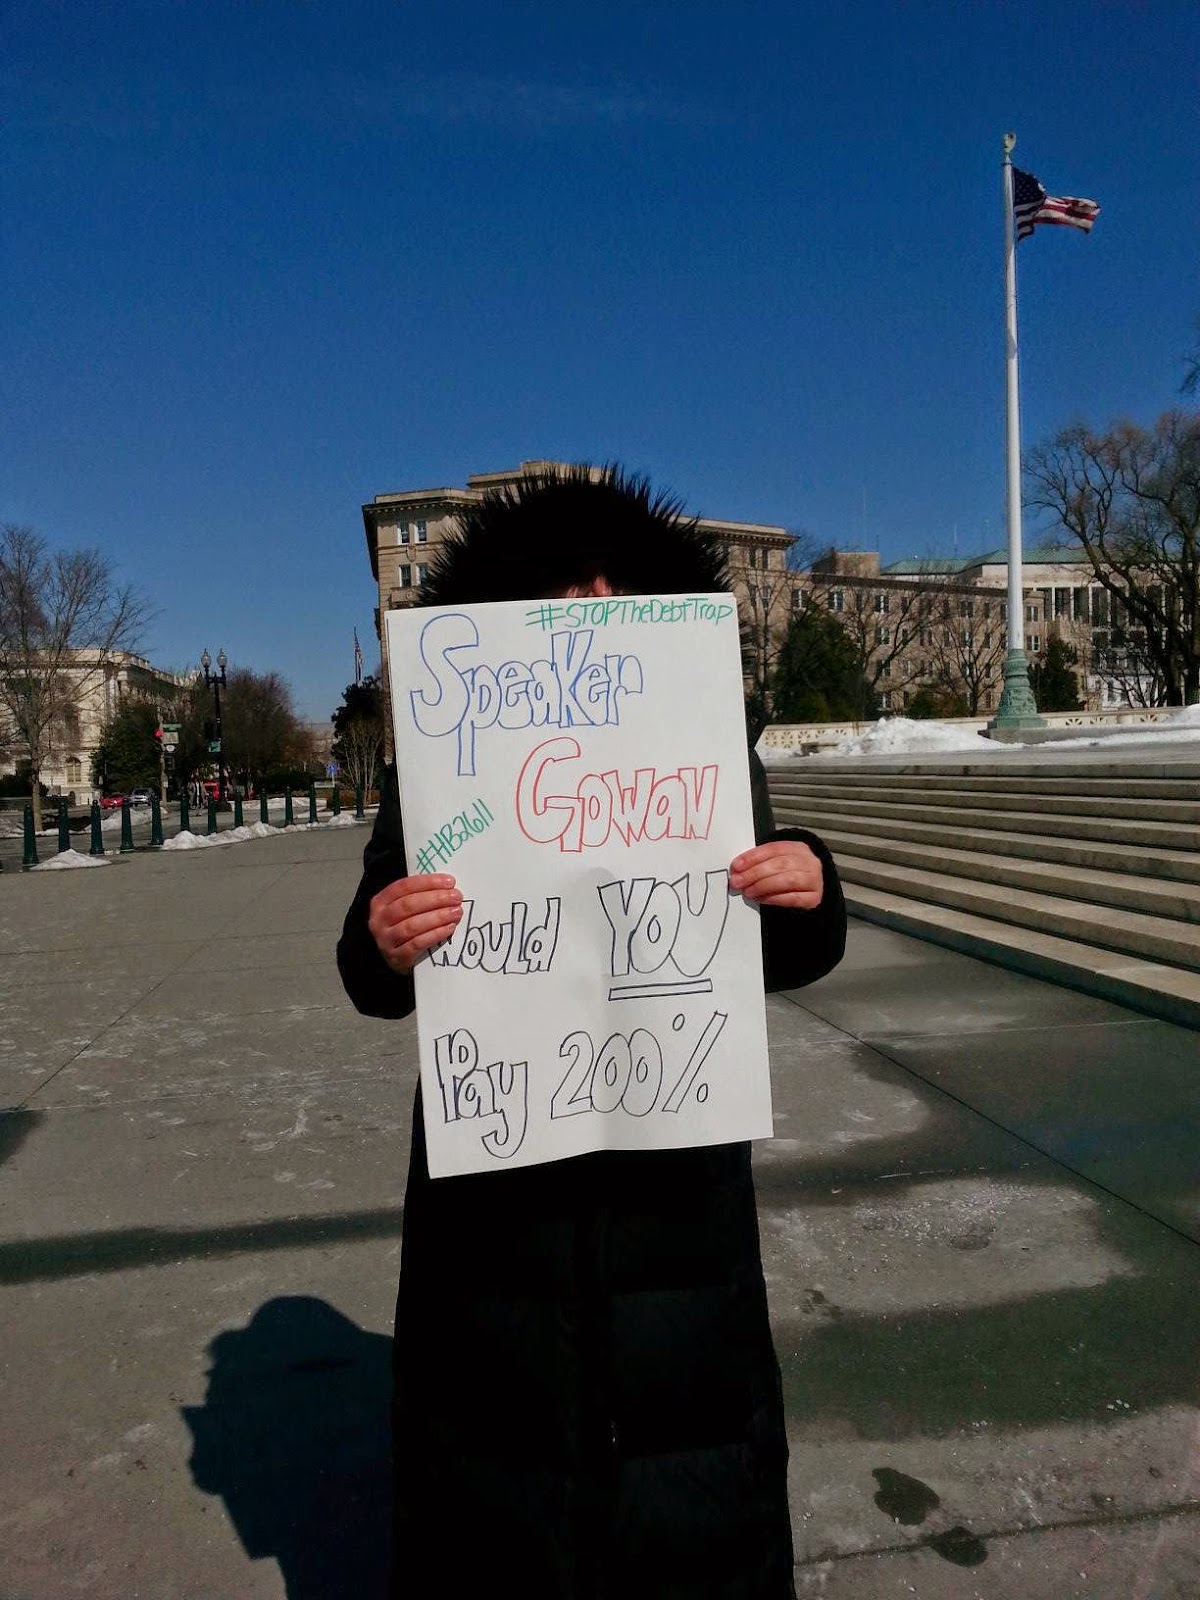 #STOPTheDebtTrap
Speaker
Gowan
#HB2611
Would YOU
Pay 200%